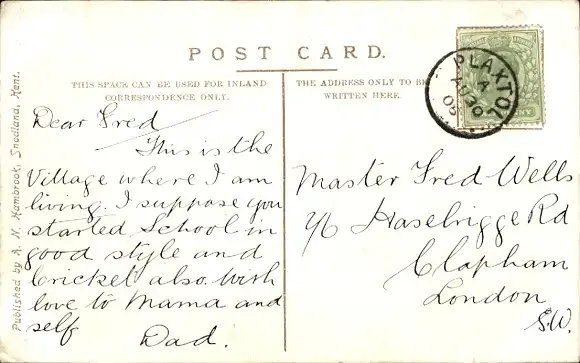 POST CARD.
THIS SPACE CAN BE USED FOR INLAND
CORRESPONDENCE ONLY.
THE ADDRESS ONLY TO BE
WRITTEN HERE.
Dear Fred
This is the
Village where I am
living. I suppose you
started School in
good style and
Cricket also. With
love to Mama and
self
Dad.
Master Fred Wells
Haselrigge Rd
Clapham
London
S.W.
Published by A. N. Hambrook, Snodland, Kent.
PLAXTOL
A
AU 30
05